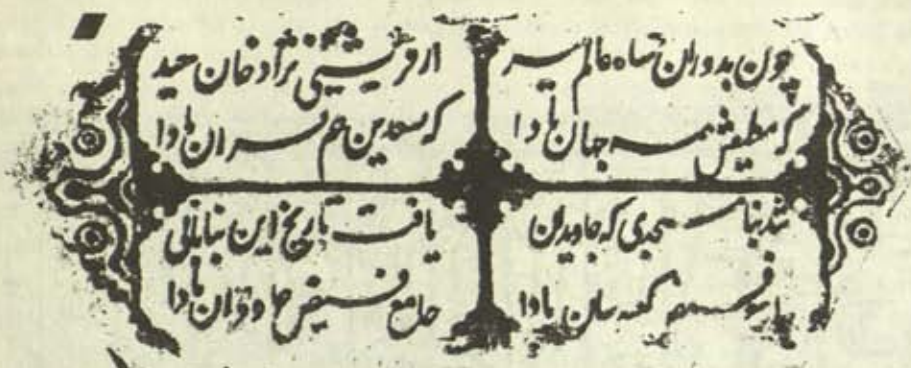 چون بدوران شاه عالم سیر
که مطیعش همه جهان بادا
از قریشی نژاد خان سعید
که بسعدین هم قران بادا
شد بنا مسجدی که جاویدان
کعبه سان بادا
یافت تاریخ این بنا
جامع فیض جاودان بادا